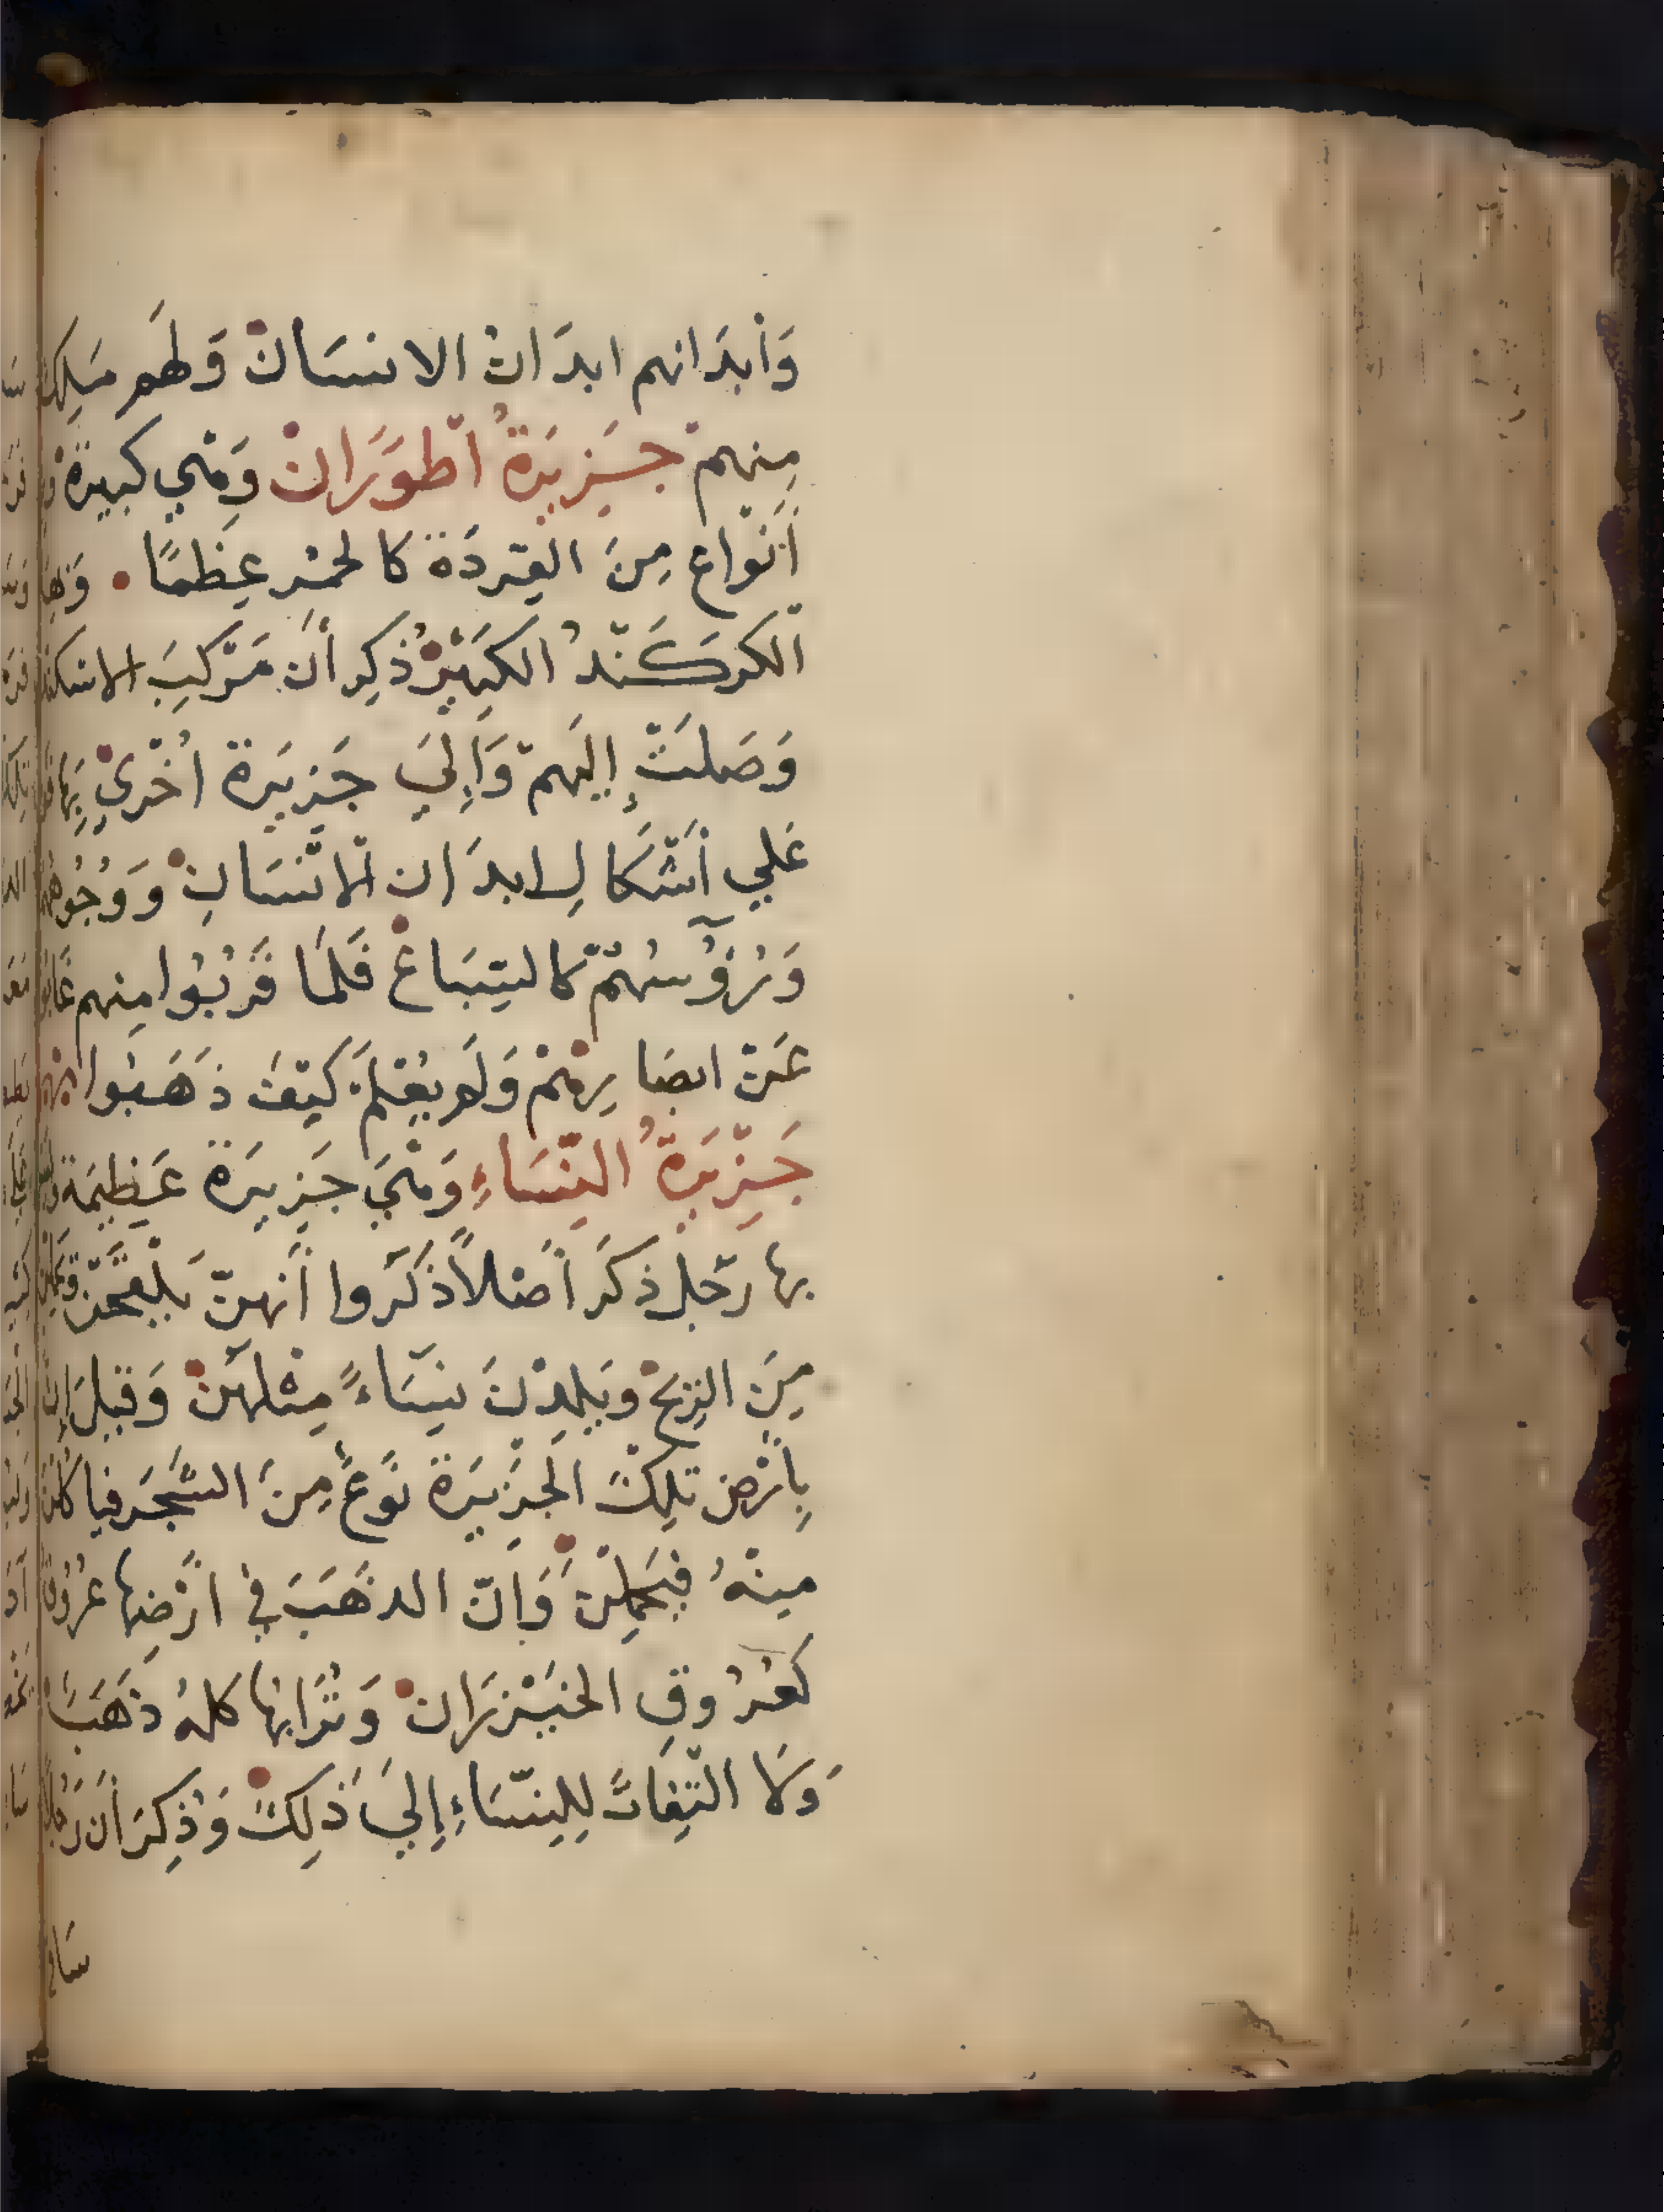 وَأبدَانهم ابدَانُ الانسَان وَلهَم مَلِك
مِنهم جَزِيرَةُ أطوَرَانْ وَهْي كبيرة
أَنوَاع مِنَ القِردَة كالحمْر عِظمًا وَبها
الكركَنّدُ الكَبيْرْ ذُكِر أن مَركبَ الاسكند
وَصَلتْ إليَهمْ وَإلي جَزيرَة اخْري بِها
عَلي أشكَالِ ابدَان الانسَانِ وَوُجُوههم
وَرُؤُسهُمْ كالسِبَاع فَلمَا قرُبُوا منهم غابُوا
عَنْ ابصَارِهمْ وَلم يعْلمْ كيْفَ ذَهَبُوا
جَزِيْرَةُ النِسَاءِ وَهْيَ جَزِيرَة عَظِيمَة
بها رَجل ذكَر أصْلاً ذكَروا أنهنّ يلقحْن
مِنَ الرِيح ويَلِدْنَ نِسَاءً مِثلهنْ وَقيلَ إن
بِأرْض تلِكْ الجَزيرَة نَوعٌ مِنَ الشَجَر فيا كلن
مِنْهُ فيَحْملْن وَإنّ الذهَبَ في ارْضِها عُرُوق
كَعُرُوقِ الخيْزرَان وَترَابها كلهُ ذهَبٌ
وَلا التِفَاتَ لِلنِسَاءِ إليَ ذَلِكْ وَذُكِرَ أن رَجُلاً